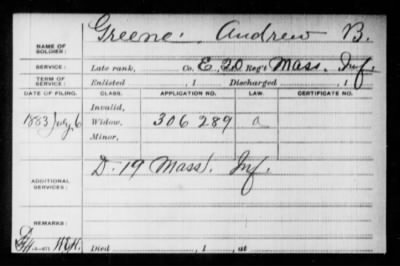 NAME OF SOLDIER: Greene, Andrew B.
SERVICE: Late rank, Co. E, 20 Reg't Mass. Inf.
TERM OF SERVICE: Enlisted , 1 Discharged , 1
DATE OF FILING. CLASS. APPLICATION NO. LAW. CERTIFICATE NO.
Invalid,
1883 July 6 Widow, 306289 a
Minor,
ADDITIONAL SERVICES: D. 19 Mass. Inf.
REMARKS:
Died , 1 , at